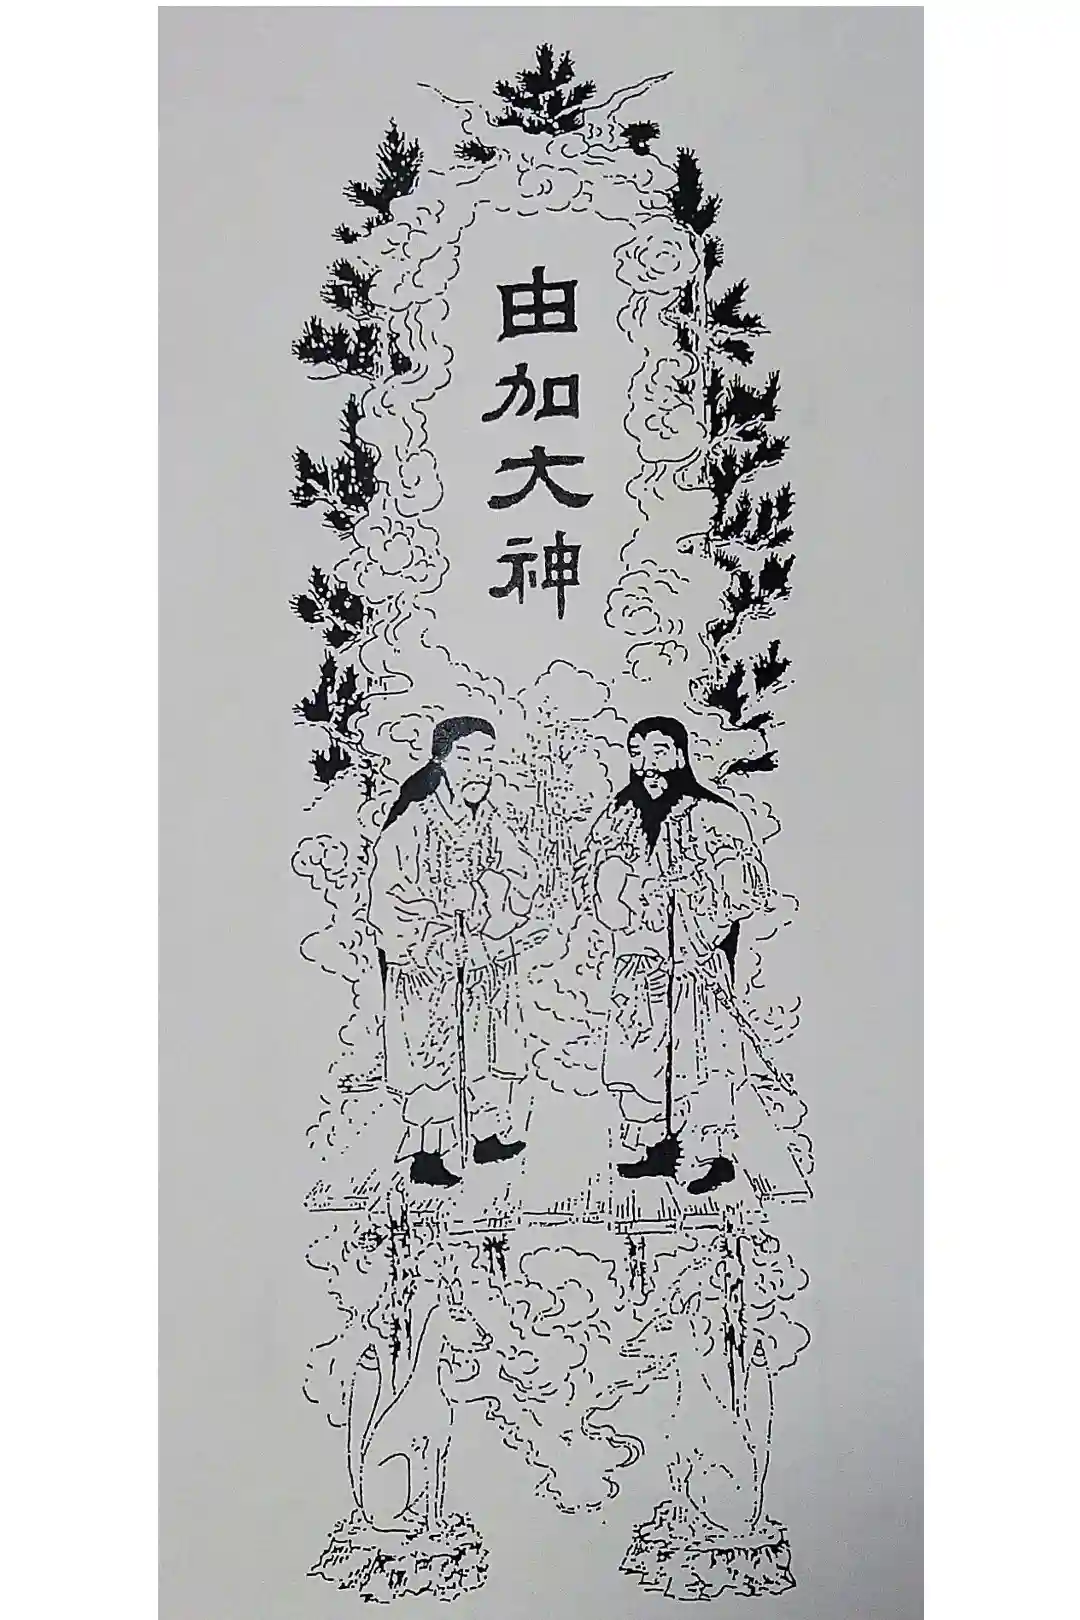 由加大神